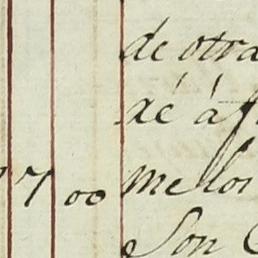 de otra
xé á
7 00 me los
Son